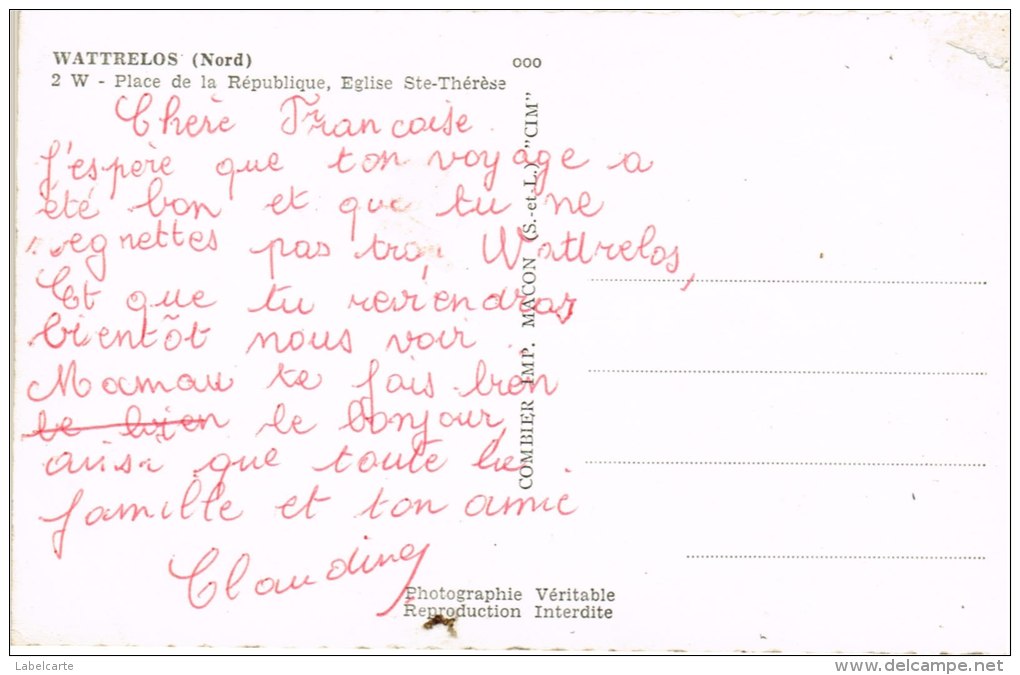 WATTRELOS (Nord)
ooo
2 W - Place de la République, Eglise Ste-Thérèse
Chère Françoise
J'espère que ton voyage a
été bon et que tu ne
regrettes pas trop Wattrelos,
Et que tu reviendras
bientôt nous voir.
Maman te fais bien
le bien le bonjour,
ainsi que toute la
famille et ton amie
Claudine
COMBIER IMP. MACON (S.-et-L.) "CIM"
Photographie Véritable
Reproduction Interdite
Labelcarte
www.delcampe.net